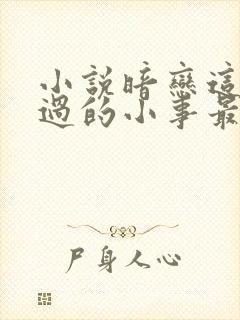 小説暗戀這
過的小事最
尸身人心